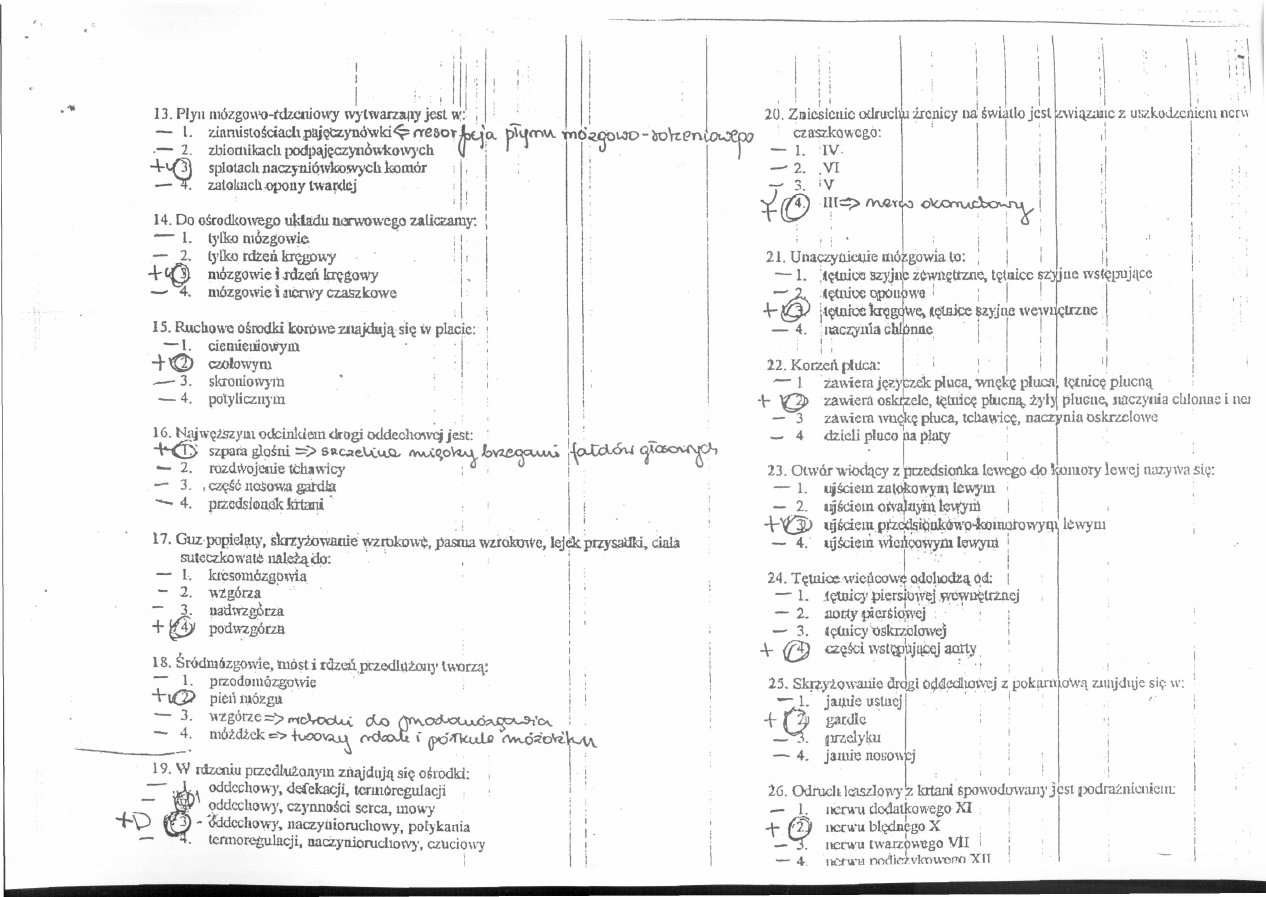 13. Płyn mózgowo-rdzeniowy wytwarzany jest w:
1. ziarnistościach pajęczynówki <= resorpcja płynu mózgowo-rdzeniowego
2. zbiornikach podpajęczynówkowych
+ 3 splotach naczyniówkowych komór
4. zatokach opony twardej
14. Do ośrodkowego układu nerwowego zaliczamy:
1. tylko mózgowie
2. tylko rdzeń kręgowy
+ 3 mózgowie i rdzeń kręgowy
4. mózgowie i nerwy czaszkowe
15. Ruchowe ośrodki korowe znajdują się w płacie:
1. ciemieniowym
+ 2 czołowym
3. skroniowym
4. potylicznym
16. Najwęższym odcinkiem drogi oddechowej jest:
+ 1. szpara głośni => szczelina między brzegami fałdów głosowych
2. rozdwojenie tchawicy
3. część nosowa gardła
4. przedsionek krtani
17. Guz popielaty, skrzyżowanie wzrokowe, pasma wzrokowe, lejek przysadki, ciała
suteczkowate należą do:
1. kresomózgowia
2. wzgórza
3. nadwzgórza
+ 4 podwzgórza
18. Śródmózgowie, móst i rdzeń przedłużony tworzą:
1. przodomózgowie
+ 2 pień mózgu
3. wzgórze => należy do
4. móżdżek => tworzą i półkule móżdżku
19. W rdzeniu przedłużonym znajdują się ośrodki:
1. oddechowy, defekacji, termoregulacji
oddechowy, czynności serca, mowy
+ 3 - oddechowy, naczynioruchowy, połykania
4. termoregulacji, naczynioruchowy, czuciowy
20. Zniesienie odruchu źrenicy na światło jest związane z uszkodzeniem nerw
czaszkowego:
1. IV
2. VI
3. V
4. III => nerw okoruchowy
21. Unaczynienie mózgowia to:
1. tętnice szyjne zewnętrzne, tętnice szyjne wstępujące
2. tętnice oponowe
+ 3 tętnice kręgowe, tętnice szyjne wewnętrzne
4. naczynia chłonne
22. Korzeń płuca:
1 zawiera języczek płuca, wnękę płuca, tętnicę płucną
+ 2 zawiera oskrzele, tętnicę płucną, żyły płucne, naczynia chłonne i ner
3 zawiera wnękę płuca, tchawicę, naczynia oskrzelowe
4 dzieli płuco na płaty
23. Otwór wiodący z przedsionka lewego do komory lewej nazywa się:
1. ujściem zatokowym lewym
2. ujściem owalnym lewym
+ 3 ujściem przedsionkowo-komorowym lewym
4. ujściem wieńcowym lewym
24. Tętnice wieńcowe odchodzą od:
1. tętnicy piersiowej wewnętrznej
2. aorty piersiowej
3. tętnicy oskrzelowej
+ 4 części wstępującej aorty
25. Skrzyżowanie drogi oddechowej z pokarmową znajduje się w:
1. jamie ustnej
+ 2 gardle
3. przełyku
4. jamie nosowej
26. Odruch kaszlowy z krtani spowodowany jest podrażnieniem:
1. nerwu dodatkowego XI
+ 2. nerwu błędnego X
3. nerwu twarzowego VII
4. nerwu podjęzykowego XII